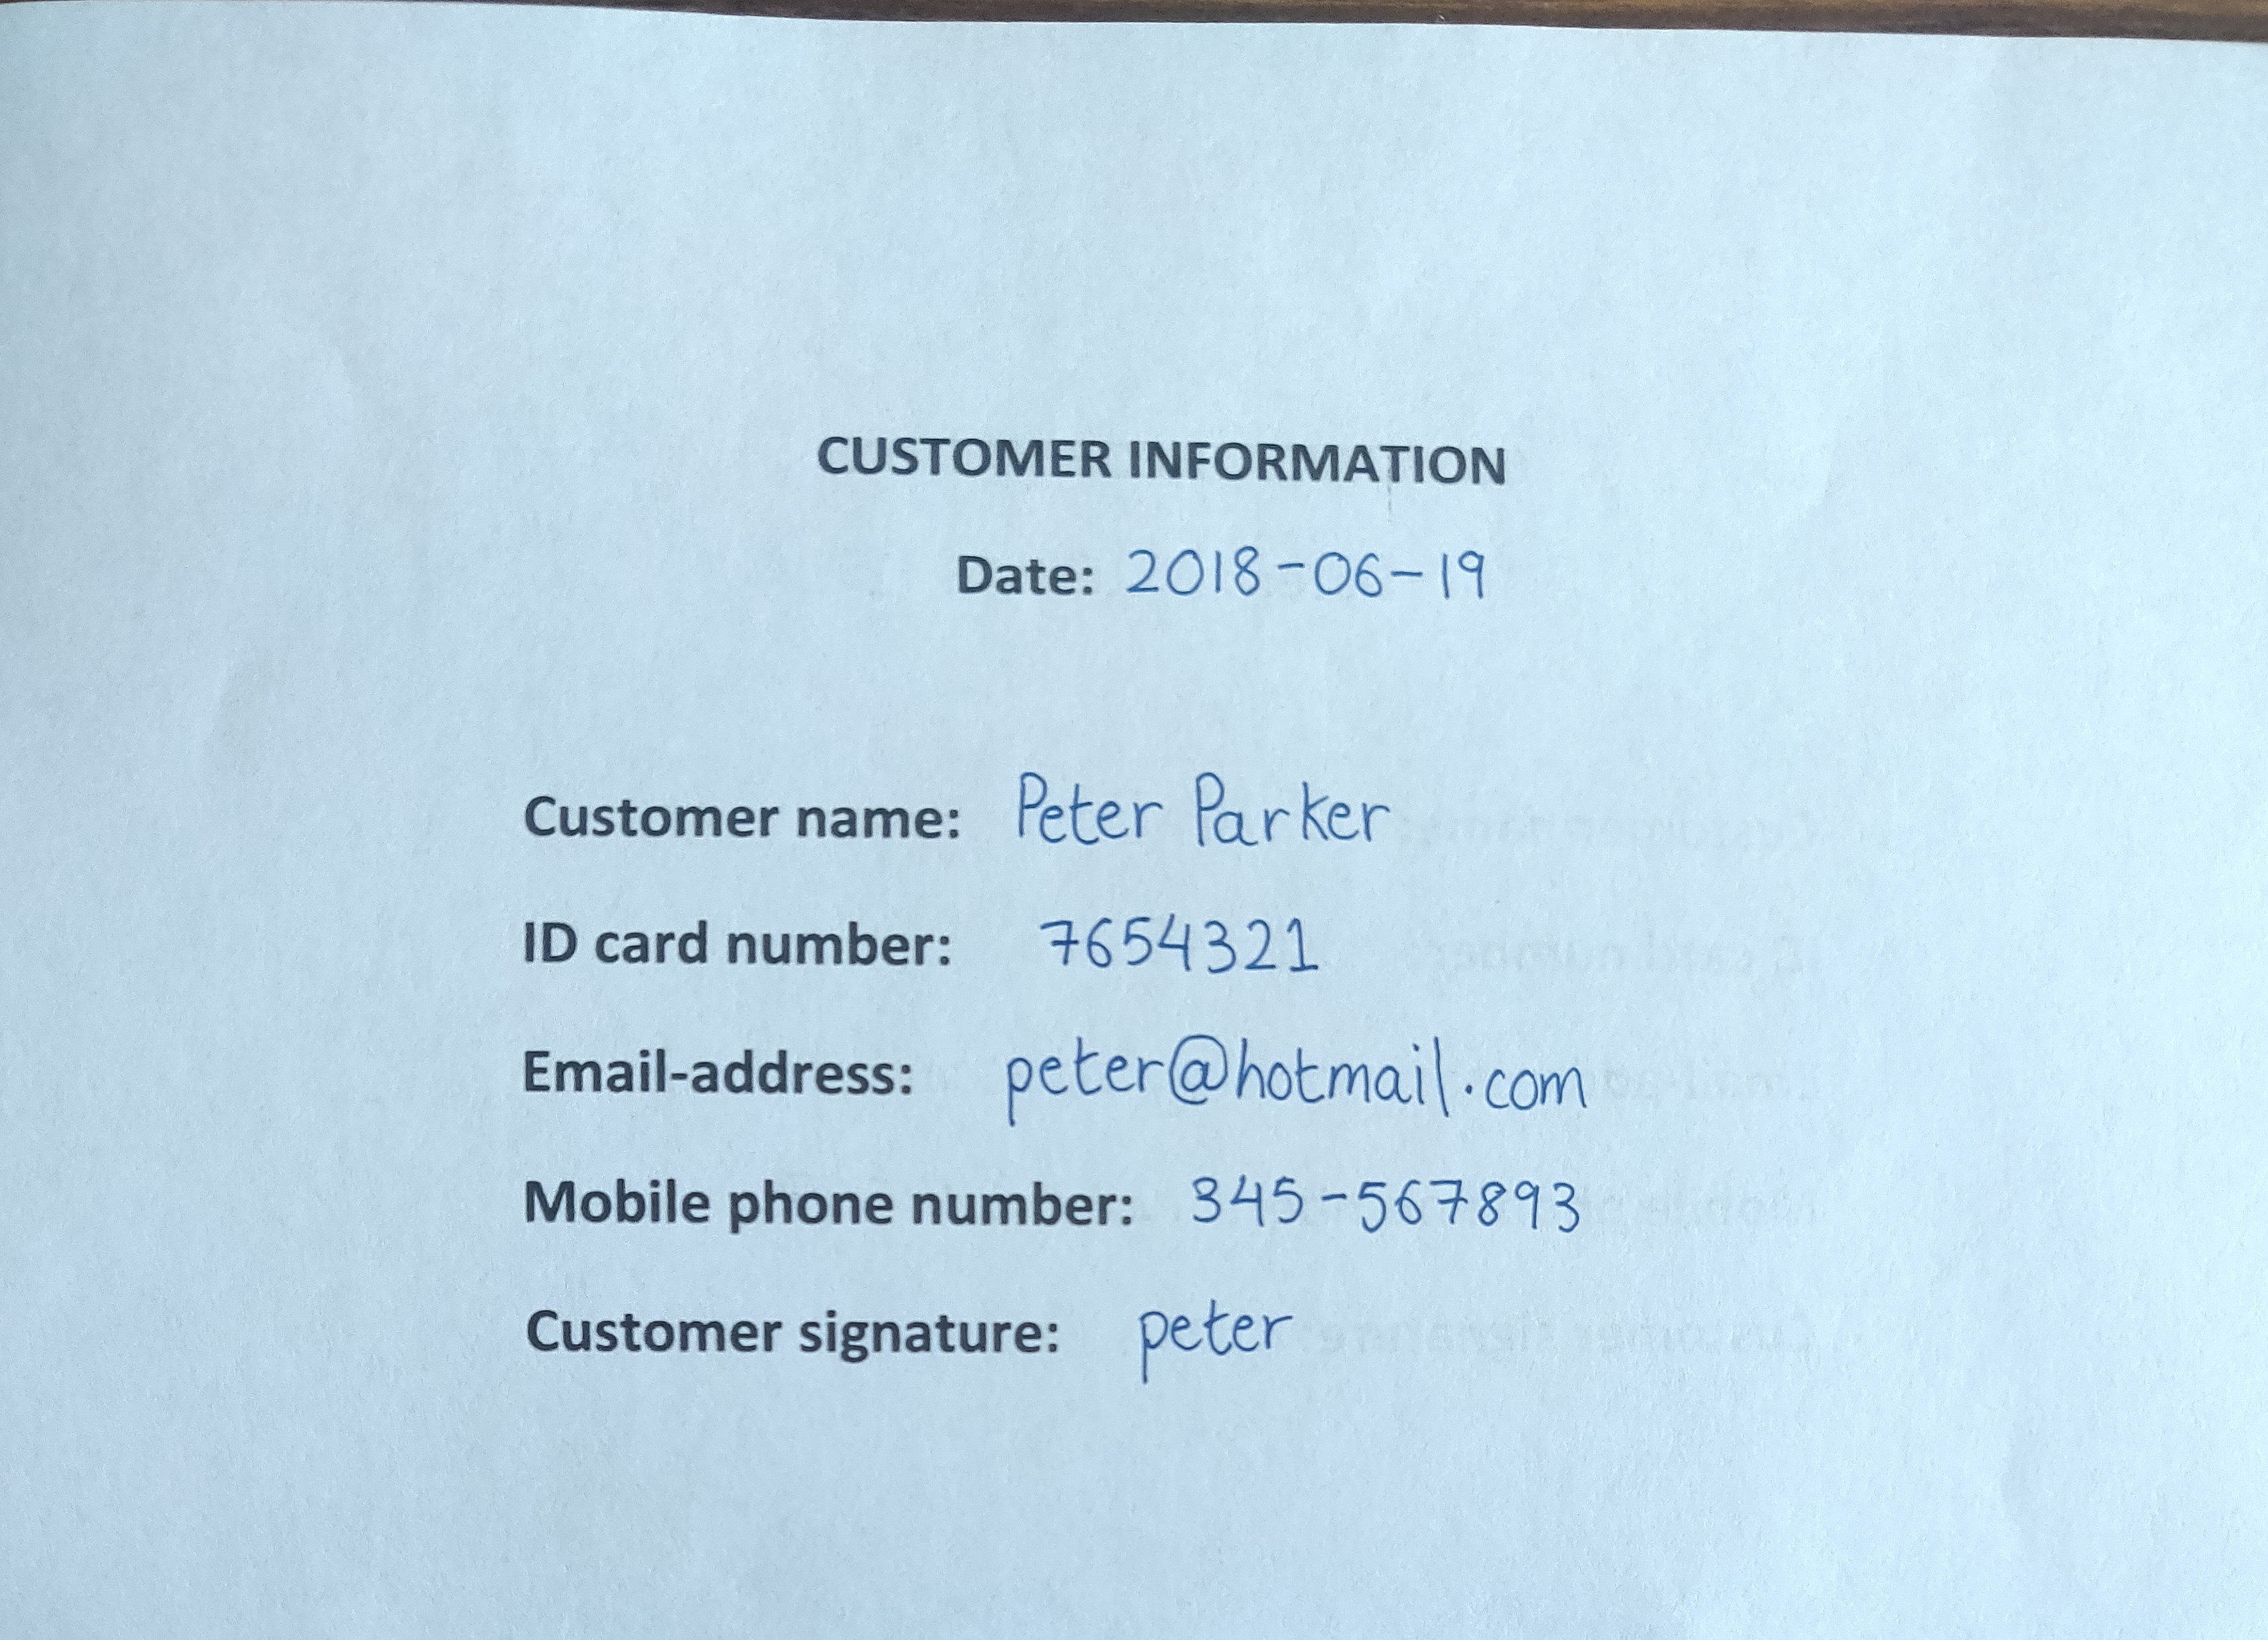 CUSTOMER INFORMATION
Date: 2018-06-19
Customer name: Peter Parker
ID card number: 7654321
Email-address: peter@hotmail.com
Mobile phone number: 345-567893
Customer signature: peter